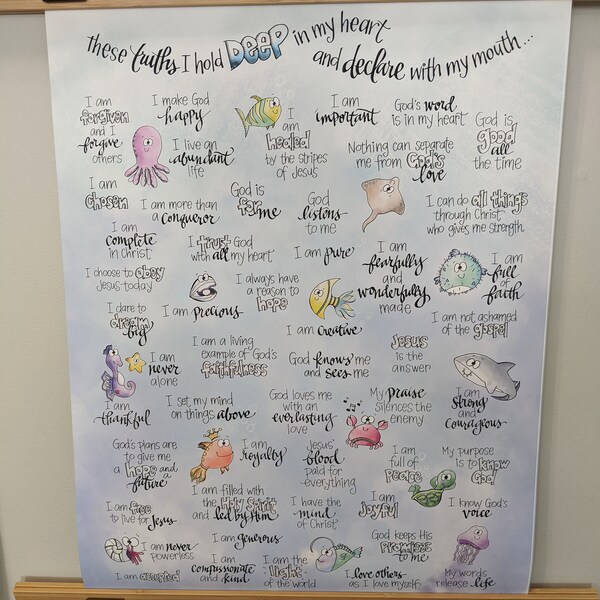 these truths I hold DEEP in my heart
and declare with my mouth...
I am
forgiven
and I
forgive
others
I make God
happy
I live an
abundant
life
I
am
healed
by the stripes
of Jesus
I am
important
God's word
is in my heart
God is
good
all
the time
Nothing can separate
me from God's
love
I am
chosen
I am more than
a conqueror
God is
for me
God
listens
to me
I can do all things
through Christ
who gives me strength
I am
complete
in Christ
I trust God
with all my heart
I am pure
I am
fearfully
and
wonderfully
made
I am
full
of
faith
I choose to obey
Jesus today
I always have
a reason to
hope
I dare to
dream
big
I am precious
I am creative
I am not ashamed
of the gospel
I am
never
alone
I am a living
example of God's
faithfulness
God knows me
and sees me
Jesus
is the
answer
I am
thankful
I set my mind
on things above
God loves me
with an
everlasting
love
My praise
silences the
enemy
I am
strong
and
courageous
God's plans are
to give me
a hope and a
future
I am
royalty
Jesus'
blood
paid for
everything
I am
full of
peace
My purpose
is to know
God
I am free
to live for Jesus
I am filled with
the Holy Spirit
and led by Him
I have the
mind
of Christ
I am
joyful
I know God's
voice
I am never
powerless
I am generous
God keeps His
promises
to me
I am accepted
I am
compassionate
and kind
I am the
light
of the world
I love others
as I love myself
My words
release life